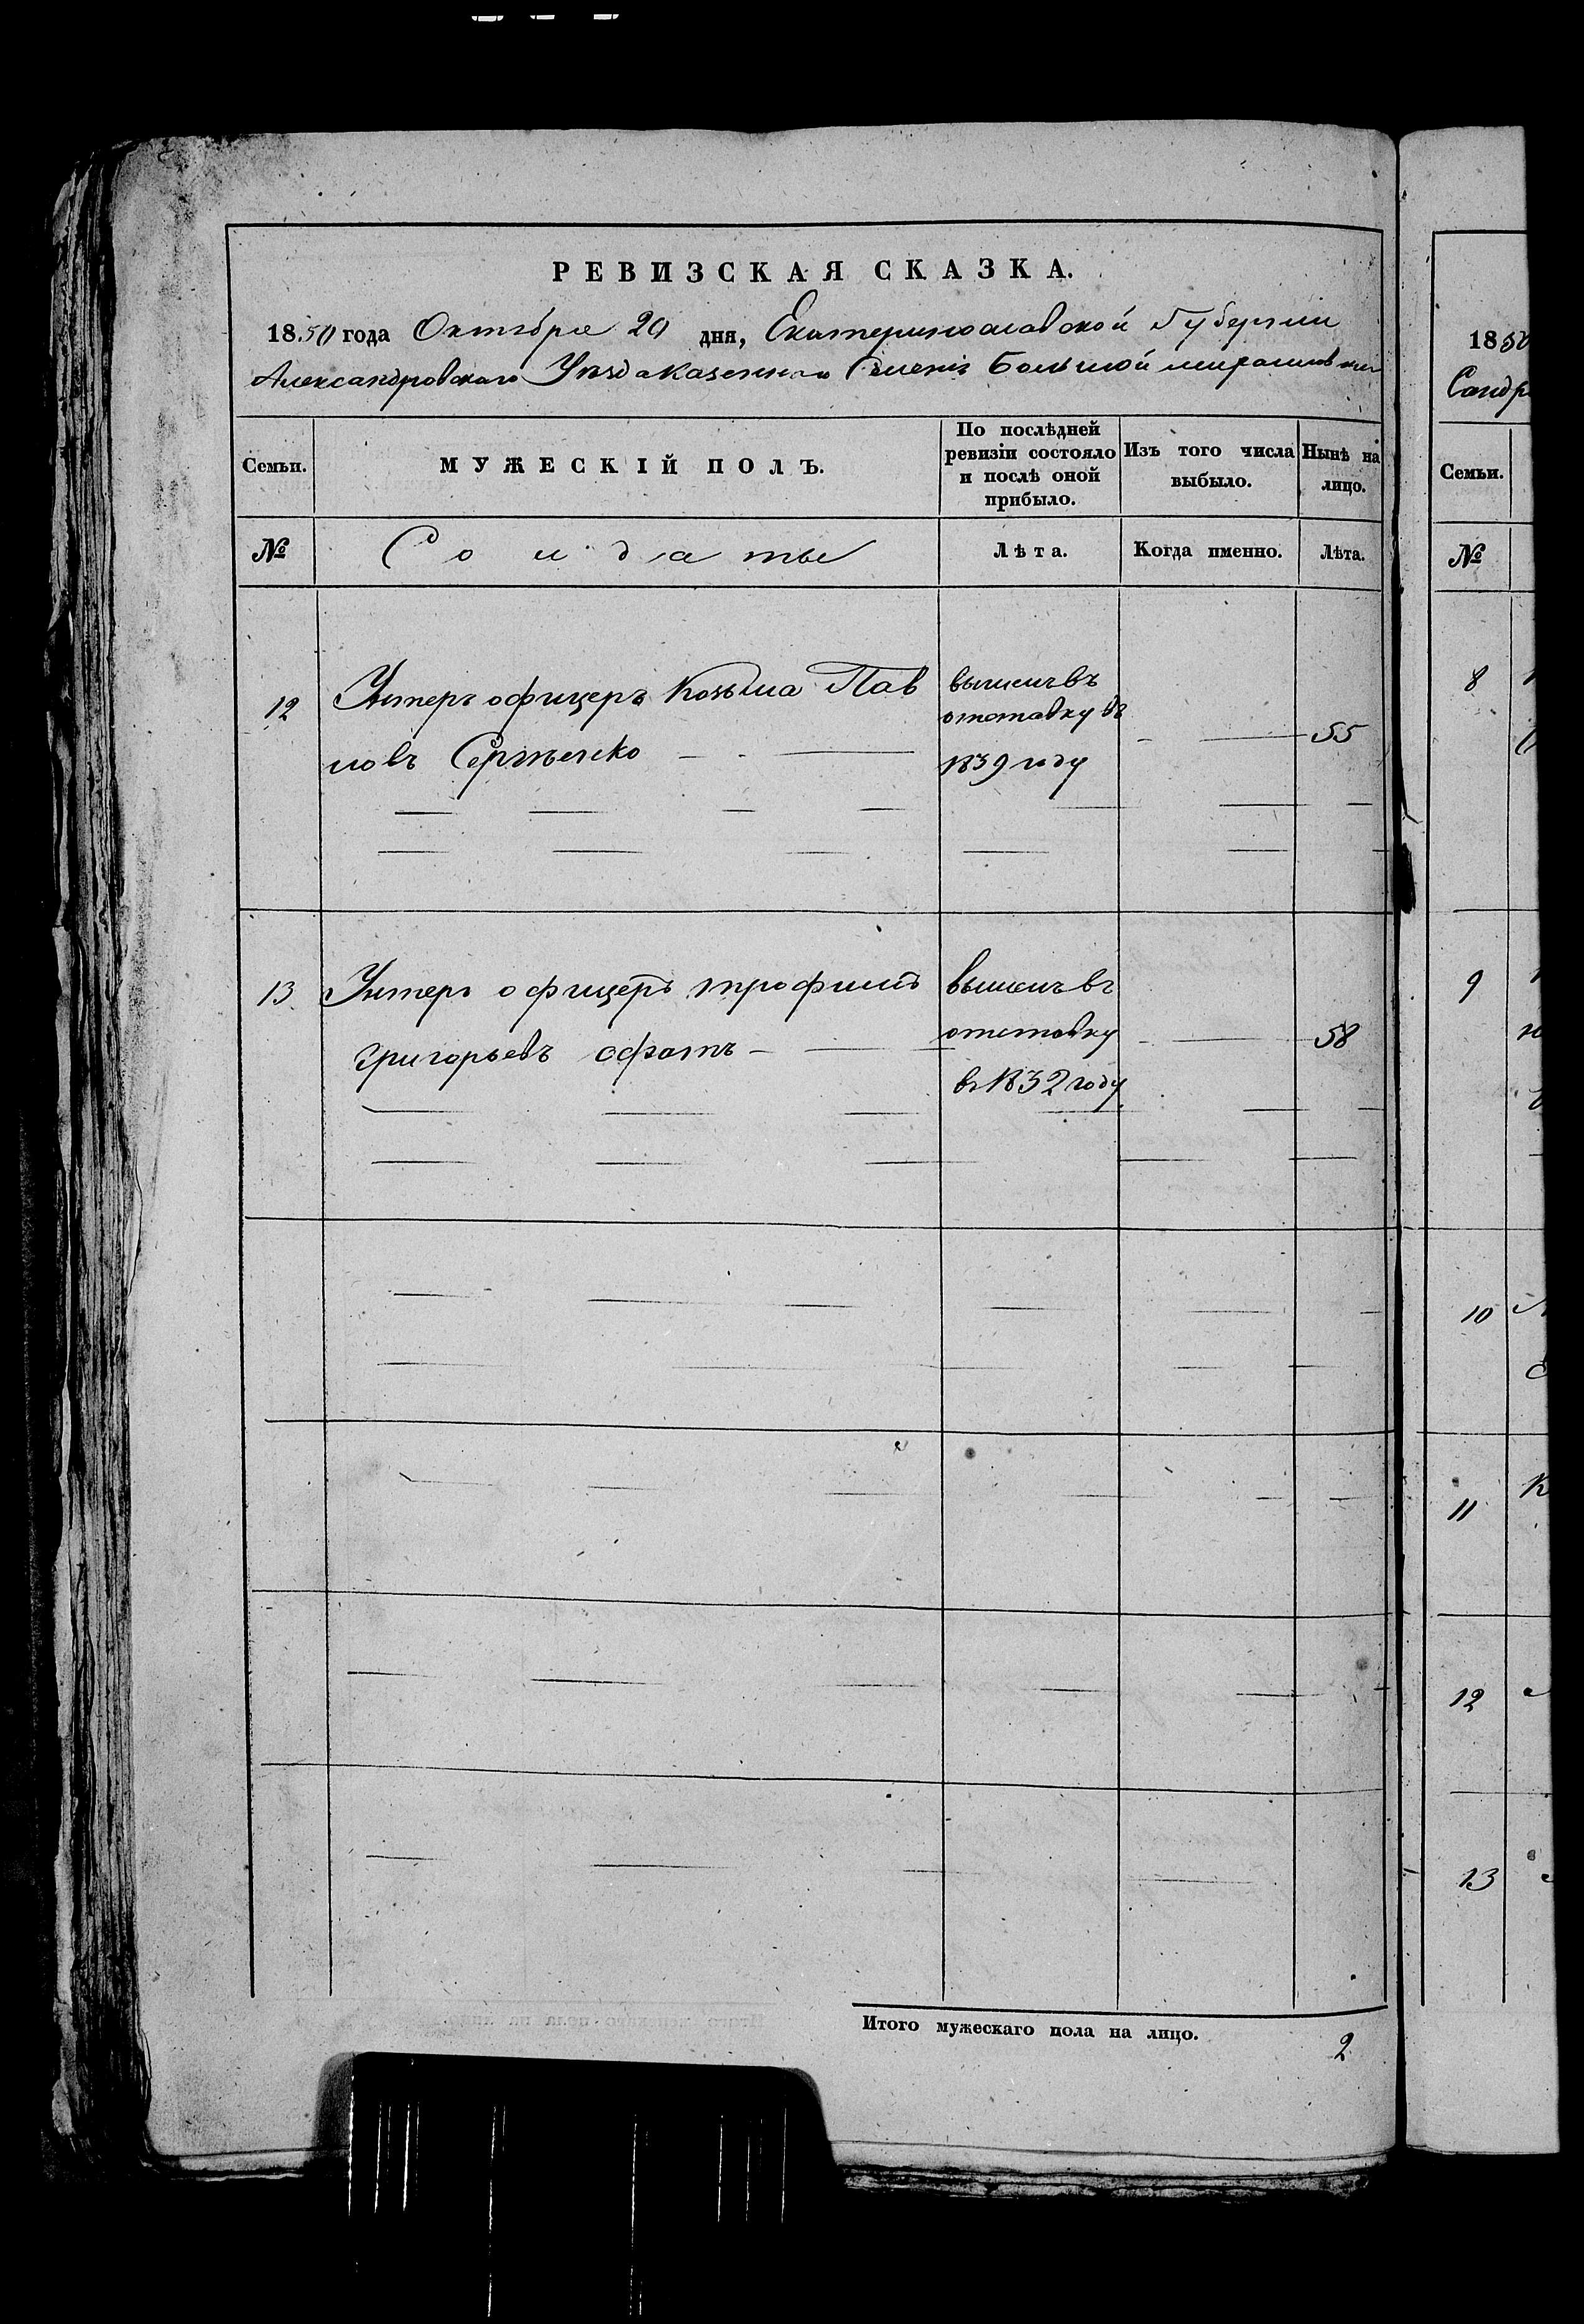 РЕВИЗСКАЯ СКАЗКА.
1850 года Октября 20 дня, Екатеринославской Губернии
Александровскаго Уѣзда казеннаго Селенія Большой
Семьи.
МУЖЕСКІЙ ПОЛЪ.
По послѣдней
ревизіи состояло
и послѣ оной
прибыло.
Изъ того числа
выбыло.
Нынѣ на
лицо.
№
Солдаты
Лѣта.
Когда именно.
Лѣта.
12
Унтеръ офицеръ Козьма Пав
ловъ Сергѣенко
вышелъ въ
отставку въ
1839 году
55
13
Унтеръ офицеръ трофимъ
григорьевъ
вышелъ въ
отставку
въ 1832 году
58
Итого мужескаго пола на лицо.
2
1850
Семьи.
№
8
9
10
11
12
13